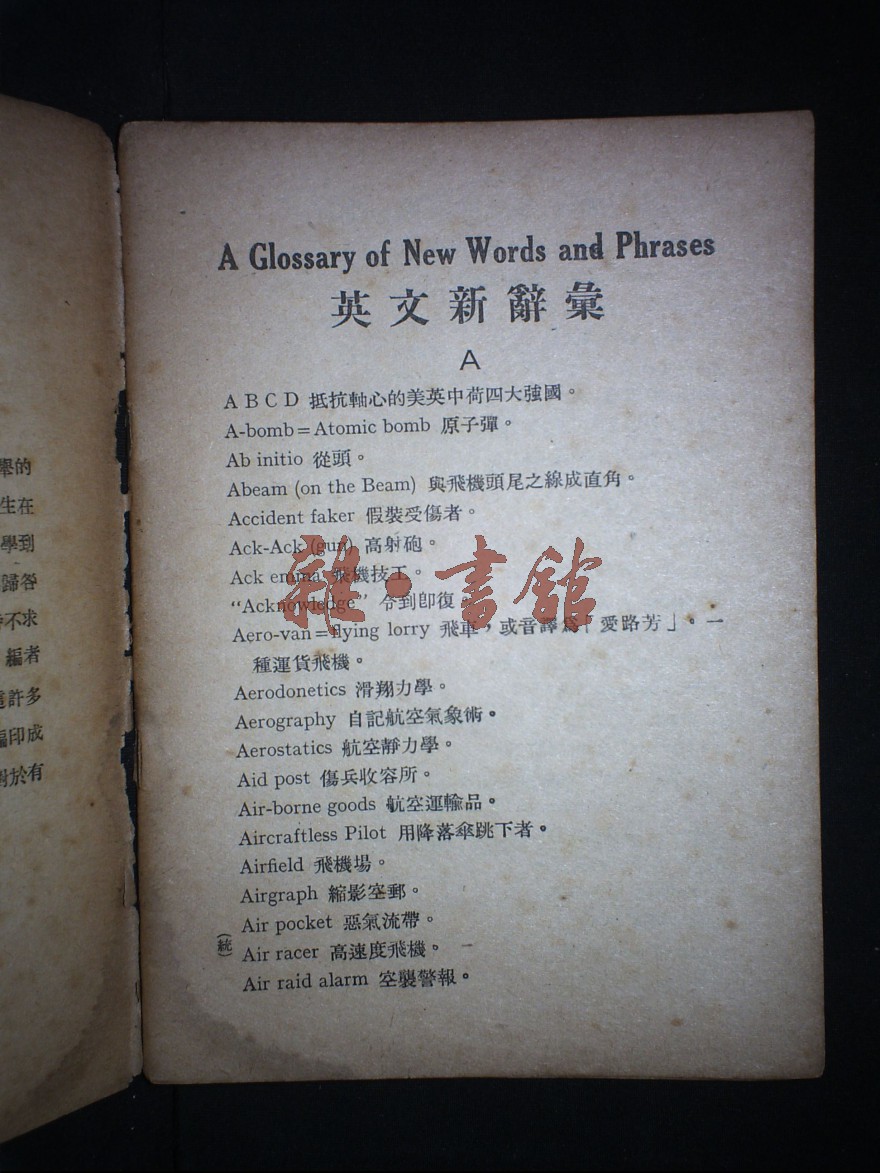 擧的
生在
學到
歸咎
不求
編者
許多
編印成
對於有
A Glossary of New Words and Phrases
英文新辭彙
A
A B C D 抵抗軸心的美英中荷四大強國。
A-bomb=Atomic bomb 原子彈。
Ab initio 從頭。
Abeam (on the Beam) 與飛機頭尾之線成直角。
Accident faker 假裝受傷者。
Ack-Ack (gun) 高射砲。
Ack emma 飛機技工。
雜·書館
"Acknowledge" 令到卽復。
Aero-van=flying lorry 飛車，或音譯爲「愛路芳」。一
種運貨飛機。
Aerodonetics 滑翔力學。
Aerography 自記航空氣象術。
Aerostatics 航空靜力學。
Aid post 傷兵收容所。
Air-borne goods 航空運輸品。
Aircraftless Pilot 用降落傘跳下者。
Airfield 飛機場。
Airgraph 縮影空郵。
Air pocket 惡氣流帶。
(統) Air racer 高速度飛機。
Air raid alarm 空襲警報。